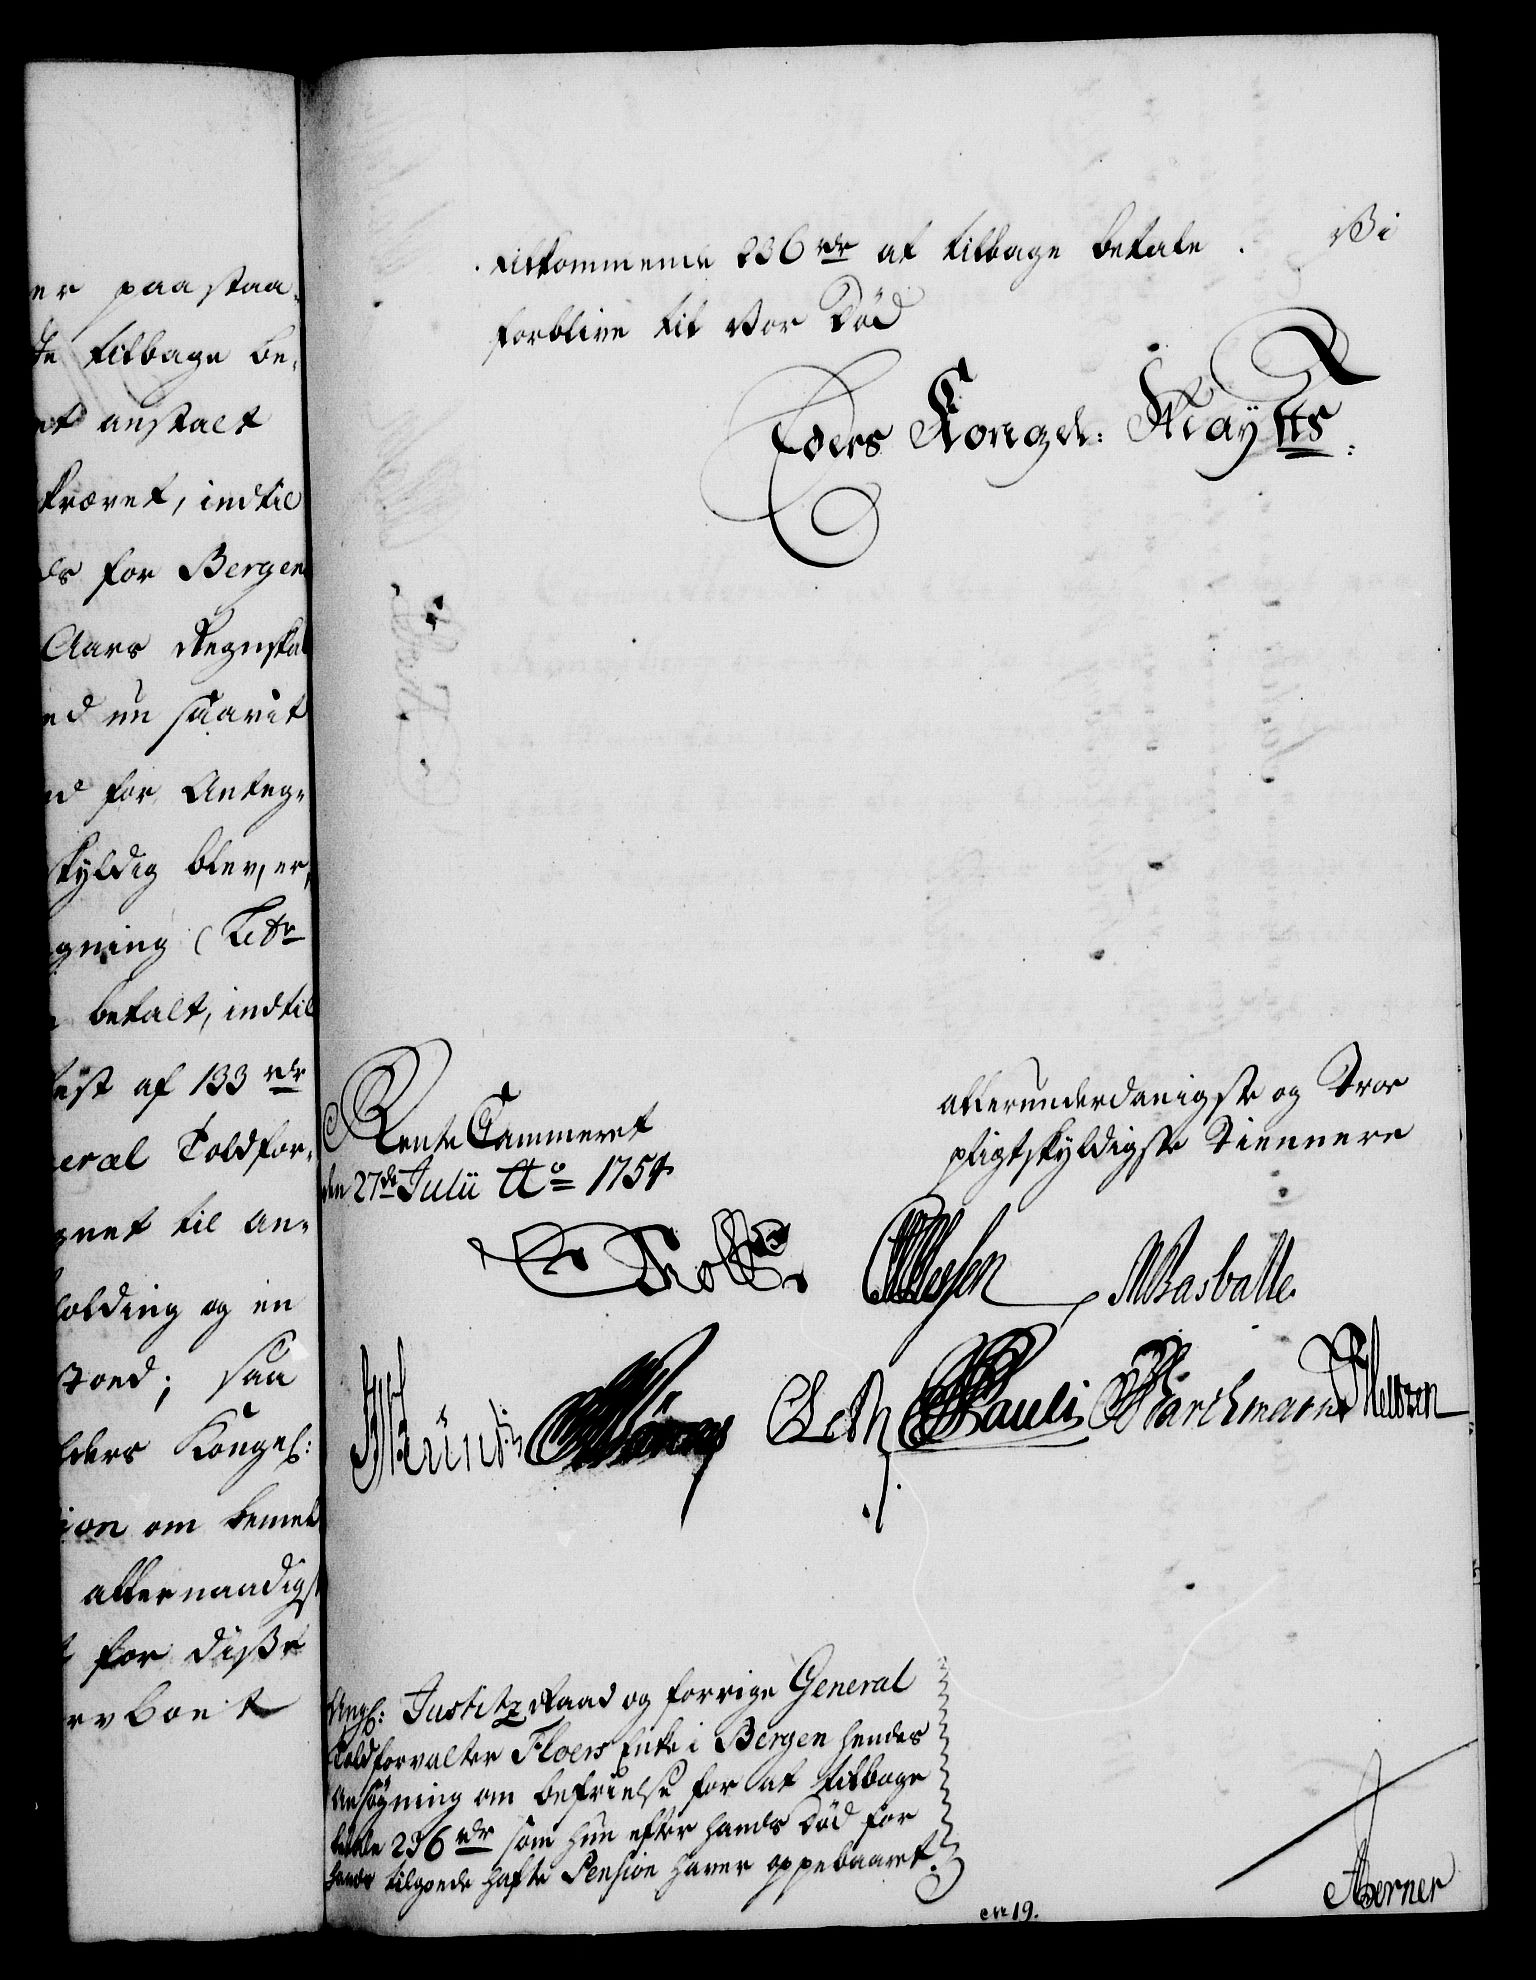 er paastaa-
de tilbage be-
et anstalt
krævet, indtil
ds for Bergen
Aars Regnska
ed un saavit
ed for Anteg-
skyldig blev, er,
gning (Litr
betalt, indtil
Rest af 133 rdr
eral Toldfor-
gnet til an-
holding og en
stoed; saa
Eders Kongel:
ion om bemel
allernaadigst
for diße
ervboet
tilkommende 236 rdr at tilbage betale. Vi
forblive til Vor Død
Eders Kongel: Maytts:
RenteCammeret
den 27de Julii Ao 1754
allerunderdanigste og Troe
pligtskyldigste Tiennere
Holst
Basballe
Leth Pauli
Ang: JustitzRaad og forrige General
Toldforvalter Floers Enke i Bergen hendes
Ansøgning om befrielse for at tilbage
betale 236 rdr som hun efter hands Død for
hands tilgoede hafte Pension haver oppebaaret.
No 19.
Berner